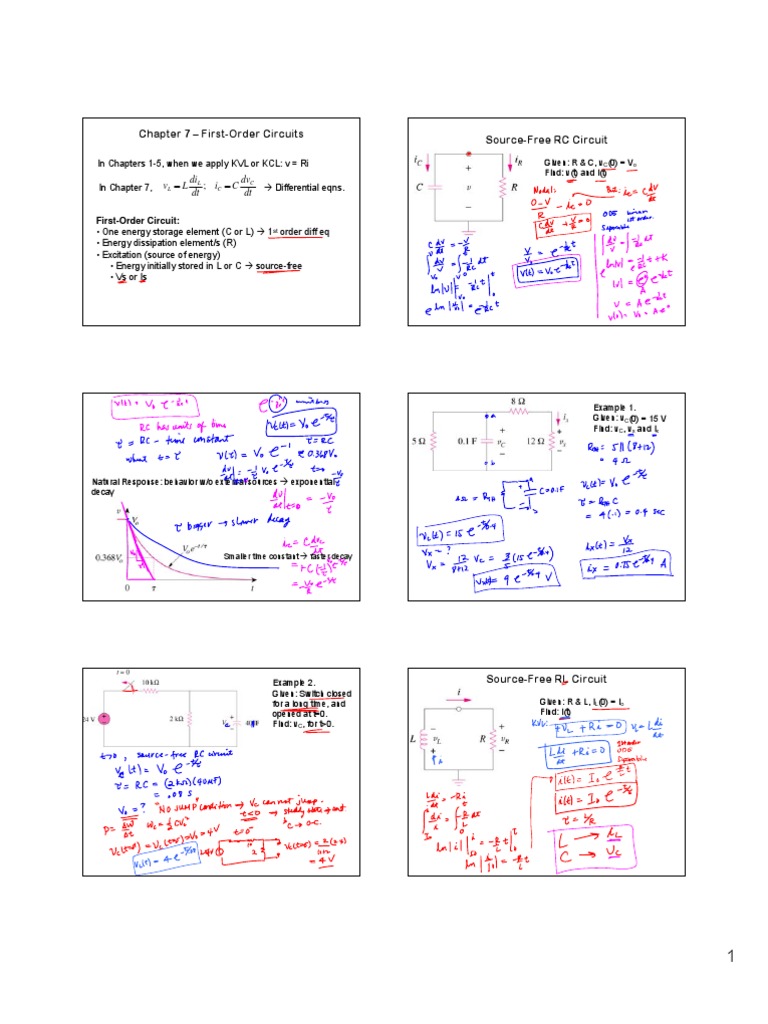 Chapter 7 – First-Order Circuits
In Chapters 1-5, when we apply KVL or KCL: v = Ri
In Chapter 7, v_L = L di_L/dt ; i_C = C dv_C/dt → Differential eqns.
First-Order Circuit:
• One energy storage element (C or L) → 1st order diff eq
• Energy dissipation element/s (R)
• Excitation (source of energy)
• Energy initially stored in L or C → source-free
• Vs or Is
Source-Free RC Circuit
i_C
i_R
C
+
v
−
R
Given: R & C, v_C(0) = V_o
Find: v(t) and i(t)
Nodal:
i_C = C dV/dt
(0−V)/R − i_C = 0
C dV/dt + V/R = 0
ODE
1st order
Separable
C dV/dt = −V/R
V/V_0 = e^(−1/RC t)
V(t) = V_0 e^(−1/RC t)
V = A e^(−1/RC t)
V(t) = V_0 e^(−1/RC t)
RC has units of time
τ = RC – time constant
V_C(t) = V_0 e^(−t/τ)
τ = RC
what t = τ
V(τ) = V_0 e^(−1) ≈ 0.368 V_0
Natural Response: behavior w/o external sources → exponential
decay
τ bigger → slower decay
v
V_o
V_o e^(−t/τ)
0.368V_o
0
τ
t
Smaller time constant → faster decay
i_C = C dV_C/dt
8 Ω
5 Ω
0.1 F
v_C
12 Ω
v_x
i_x
Example 1.
Given: v_C(0) = 15 V
Find: v_C, v_x and i_x
R_EQ = 5 || (8+12)
= 4 Ω
V_C(t) = V_0 e^(−t/τ)
τ = R_EQ C
= 4(.1) = 0.4 sec
C = 0.1F
V_C(t) = 15 e^(−t/0.4)
V_x = ?
V_x = 12/(8+12) V_C = 3/5 (15 e^(−t/0.4))
V_x(t) = 9 e^(−t/0.4) V
i_x(t) = V_x/12
i_x = 0.75 e^(−t/0.4) A
t = 0
10 kΩ
24 V
2 kΩ
Example 2.
Given: Switch closed
for a long time, and
opened at t=0.
Find: v_C, for t>0.
t>0, source-free RC circuit
V_C(t) = V_0 e^(−t/τ)
τ = RC = (2kΩ)(40μF)
= .08 s
V_0 = ?
"No JUMP" condition → V_C can not jump.
t<0 → steady state
P = dW/dt
W_C = ½ C V_C²
C → O.C.
t = 0⁻
= 4V
Source-Free RL Circuit
i
L
v_L
R
v_R
Given: R & L, i_L(0) = I_o
Find: i(t)
KVL:
+V_L + Ri = 0
V_L = L di/dt
L di/dt + Ri = 0
1st order
ODE
Separable
L di/dt = −Ri
i(t) = I_0 e^(−R/L t)
i(t) = I_0 e^(−t/τ)
τ = L/R
L → i_L
C → V_C
1